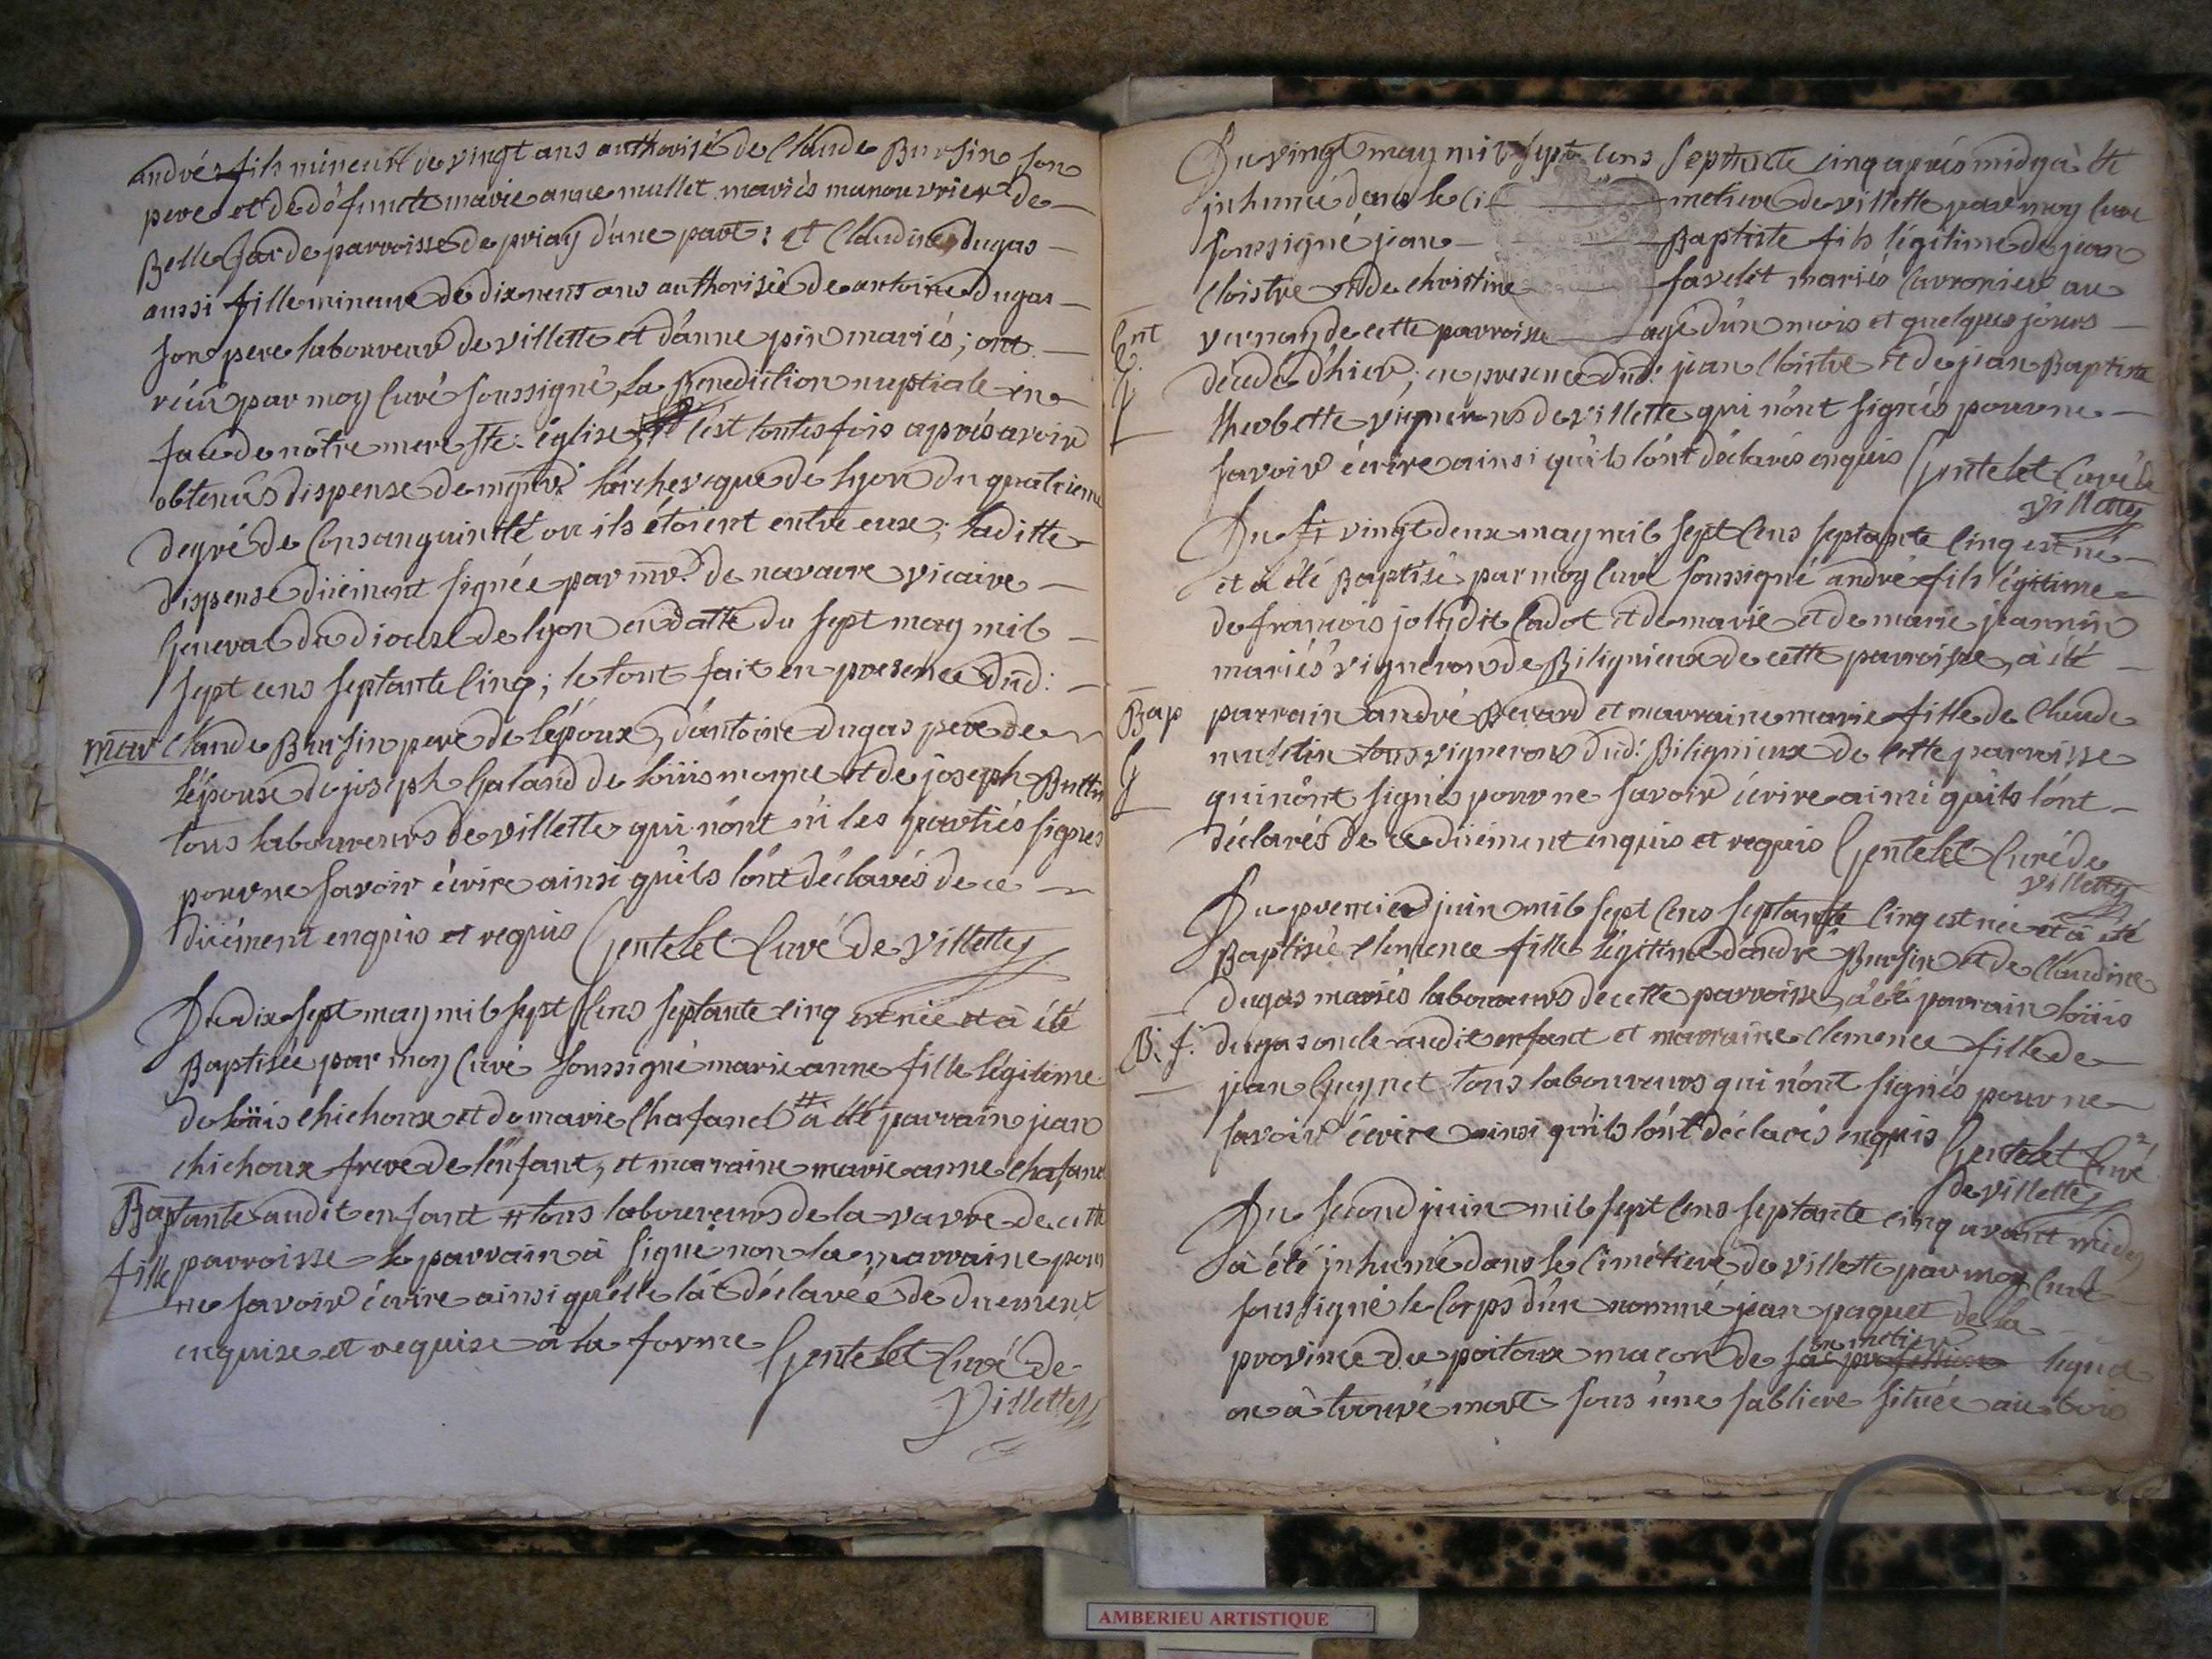 andré fils mineur de vingt ans authorisé de Claude Bursin son
pere et de défuncte marie anne mullet mariés manouvrier de
Belle garde parroisse de priay d'une part: et Claudine dugas
aussi fille mineure de dix neuf ans authorisée de antoine dugas
son pere laboureur de villette et d'anne pin mariés; ont
réçu par moy curé soussigné, la Benediction nuptiale en
face de nôtre mere ste. église c'est toutesfois aprés avoir
obtenus dispense de l'archevêque de lyon du quatrieme
degré de Consanguinité ou ils étoient entre eux; laditte
dispense düement signée par mr. de navarre vicaire
General du diocese de lyon en datte du sept may mil
sept cens septante Cinq; le tout fait en presence dud:
mar Claude Bursin pere de l'époux, d'antoine dugas pere de
l'épouse de joseph Galand de loüis moyne et de joseph
tous laboureurs de villette qui n'ont ni les partiés signes
pour ne savoir écrire ainsi qu'ils l'ont déclarés de ce
düement enquis et requis Gentelet Curé de Villette
Du dix sept may mil sept Cens septante cinq est née et à été
Baptisée par moy Curé soussigné marie anne fille légitime
de loüis chichoux et de marie Chafanel # à été parrain jean
chichoux frere de l'enfant, et marraine marie anne chafanel
Bap tante audit enfant # tous laboureurs de la vavre de cette
fille parroisse le parrain à signé non la marraine pour
ne savoir écrire ainsi qu'elle l'at déclarée de duement
enquise et requise à la forme Gentelet Curé de
Villette
Du vingt may mil sept cens septante cinq aprés midy à été
jnhumé dans le ci metiere de villette par moy Curé
soussigné jean Baptiste fils légitime de jean
Cloistre et de christine favelet mariés au
Ent vernay de cette parroisse agé d'un mois et quelques jours
décédé d'hier; en presence dud: jean Cloistre et de jean Baptiste
G vignerons de villette qui n'ont signés pour ne
savoir écrire ainsi qu'ils l'ont déclarés enquis Gentelet Curé de
Villette
Du vingt deux may mil sept Cens septante Cinq est né
et à été Baptisé par moy Curé soussigné andré fils légitime
de francois joly dit Cadot et de marie et de marie jeannin
mariés vigneron de Bilignieux de cette parroisse, à été
Bap parrain andré Bevard et marraine marie fille de Claude
tous vignerons dud: Bilignieux de cette parroisse
G qui n'ont signés pour ne savoir écrire ainsi qu'ils l'ont
déclarés de ce düement enquis et requis Gentelet Curé de
Villette
Du premier juin mil sept Cens septante Cinq est née et à été
Baptisée clemence fille légitime d'andré Bursin et de Claudine
dugas mariés laboureurs de cette parroisse, à été parrain loüis
B. f. dugas oncle audit enfant et marraine clemence fille de
jean Guynet tous laboureurs qui n'ont signés pour ne
savoir écrire ainsi qu'ils l'ont déclarés enquis Gentelet Curé
de villette
Du second juin mil sept Cens septante cinq avant midy
à été jnhumé dans le cimétiere de villette par moy Curé
soussigné le Corps d'un nommé jean paquet de la
province du poitoux macon de sa profession lequel
on metier
on à trouvé mort sous une sabliere située au bois
AMBERIEU ARTISTIQUE